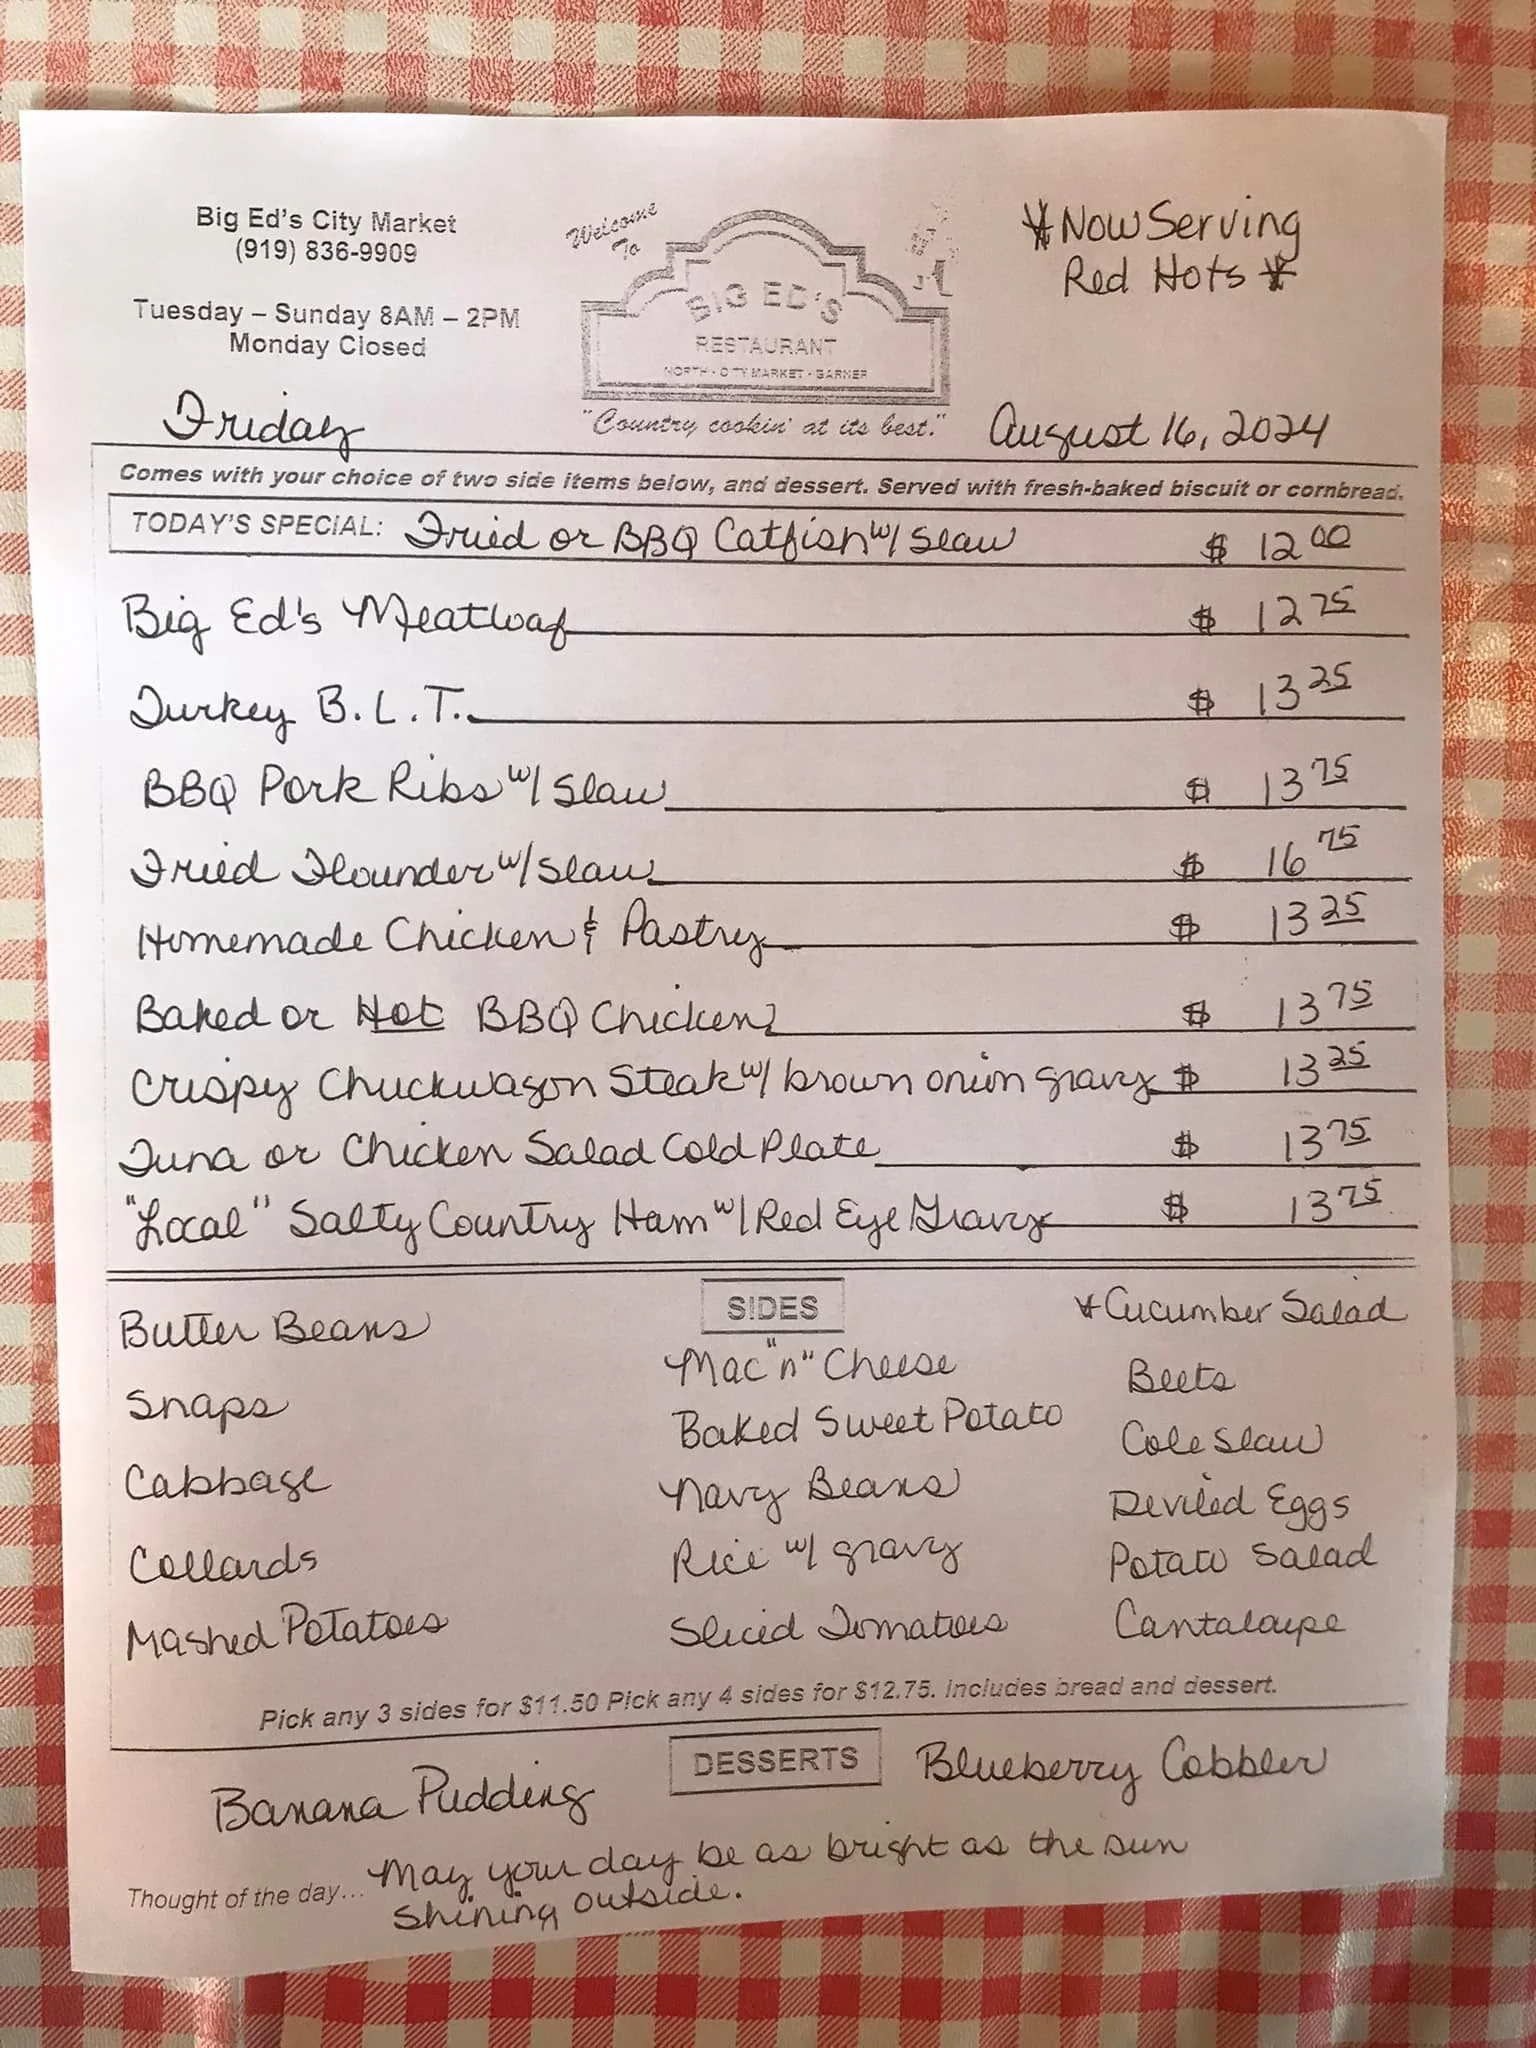 Big Ed's City Market
(919) 836-9909
Tuesday – Sunday 8AM – 2PM
Monday Closed
Welcome
To
BIG ED'S
RESTAURANT
NORTH · CITY MARKET · GARNER
"Country cookin' at its best."
*Now Serving
Red Hots*
Friday
August 16, 2024
Comes with your choice of two side items below, and dessert. Served with fresh-baked biscuit or cornbread.
TODAY'S SPECIAL: Fried or BBQ Catfish w/ Slaw $ 12 00
Big Ed's Meatloaf $ 12 75
Turkey B.L.T. $ 13 25
BBQ Pork Ribs w/ Slaw $ 13 75
Fried Flounder w/ Slaw $ 16 75
Homemade Chicken & Pastry $ 13 25
Baked or Hot BBQ Chicken $ 13 75
Crispy Chuckwagon Steak w/ brown onion gravy $ 13 25
Tuna or Chicken Salad Cold Plate $ 13 75
"Local" Salty Country Ham w/ Red Eye Gravy $ 13 75
SIDES
Butter Beans
Snaps
Cabbage
Collards
Mashed Potatoes
Mac "n" Cheese
Baked Sweet Potato
Navy Beans
Rice w/ gravy
Sliced Tomatoes
*Cucumber Salad
Beets
Cole Slaw
Deviled Eggs
Potato Salad
Cantaloupe
Pick any 3 sides for $11.50 Pick any 4 sides for $12.75. Includes bread and dessert.
DESSERTS
Banana Pudding
Blueberry Cobbler
Thought of the day... May your day be as bright as the sun
shining outside.